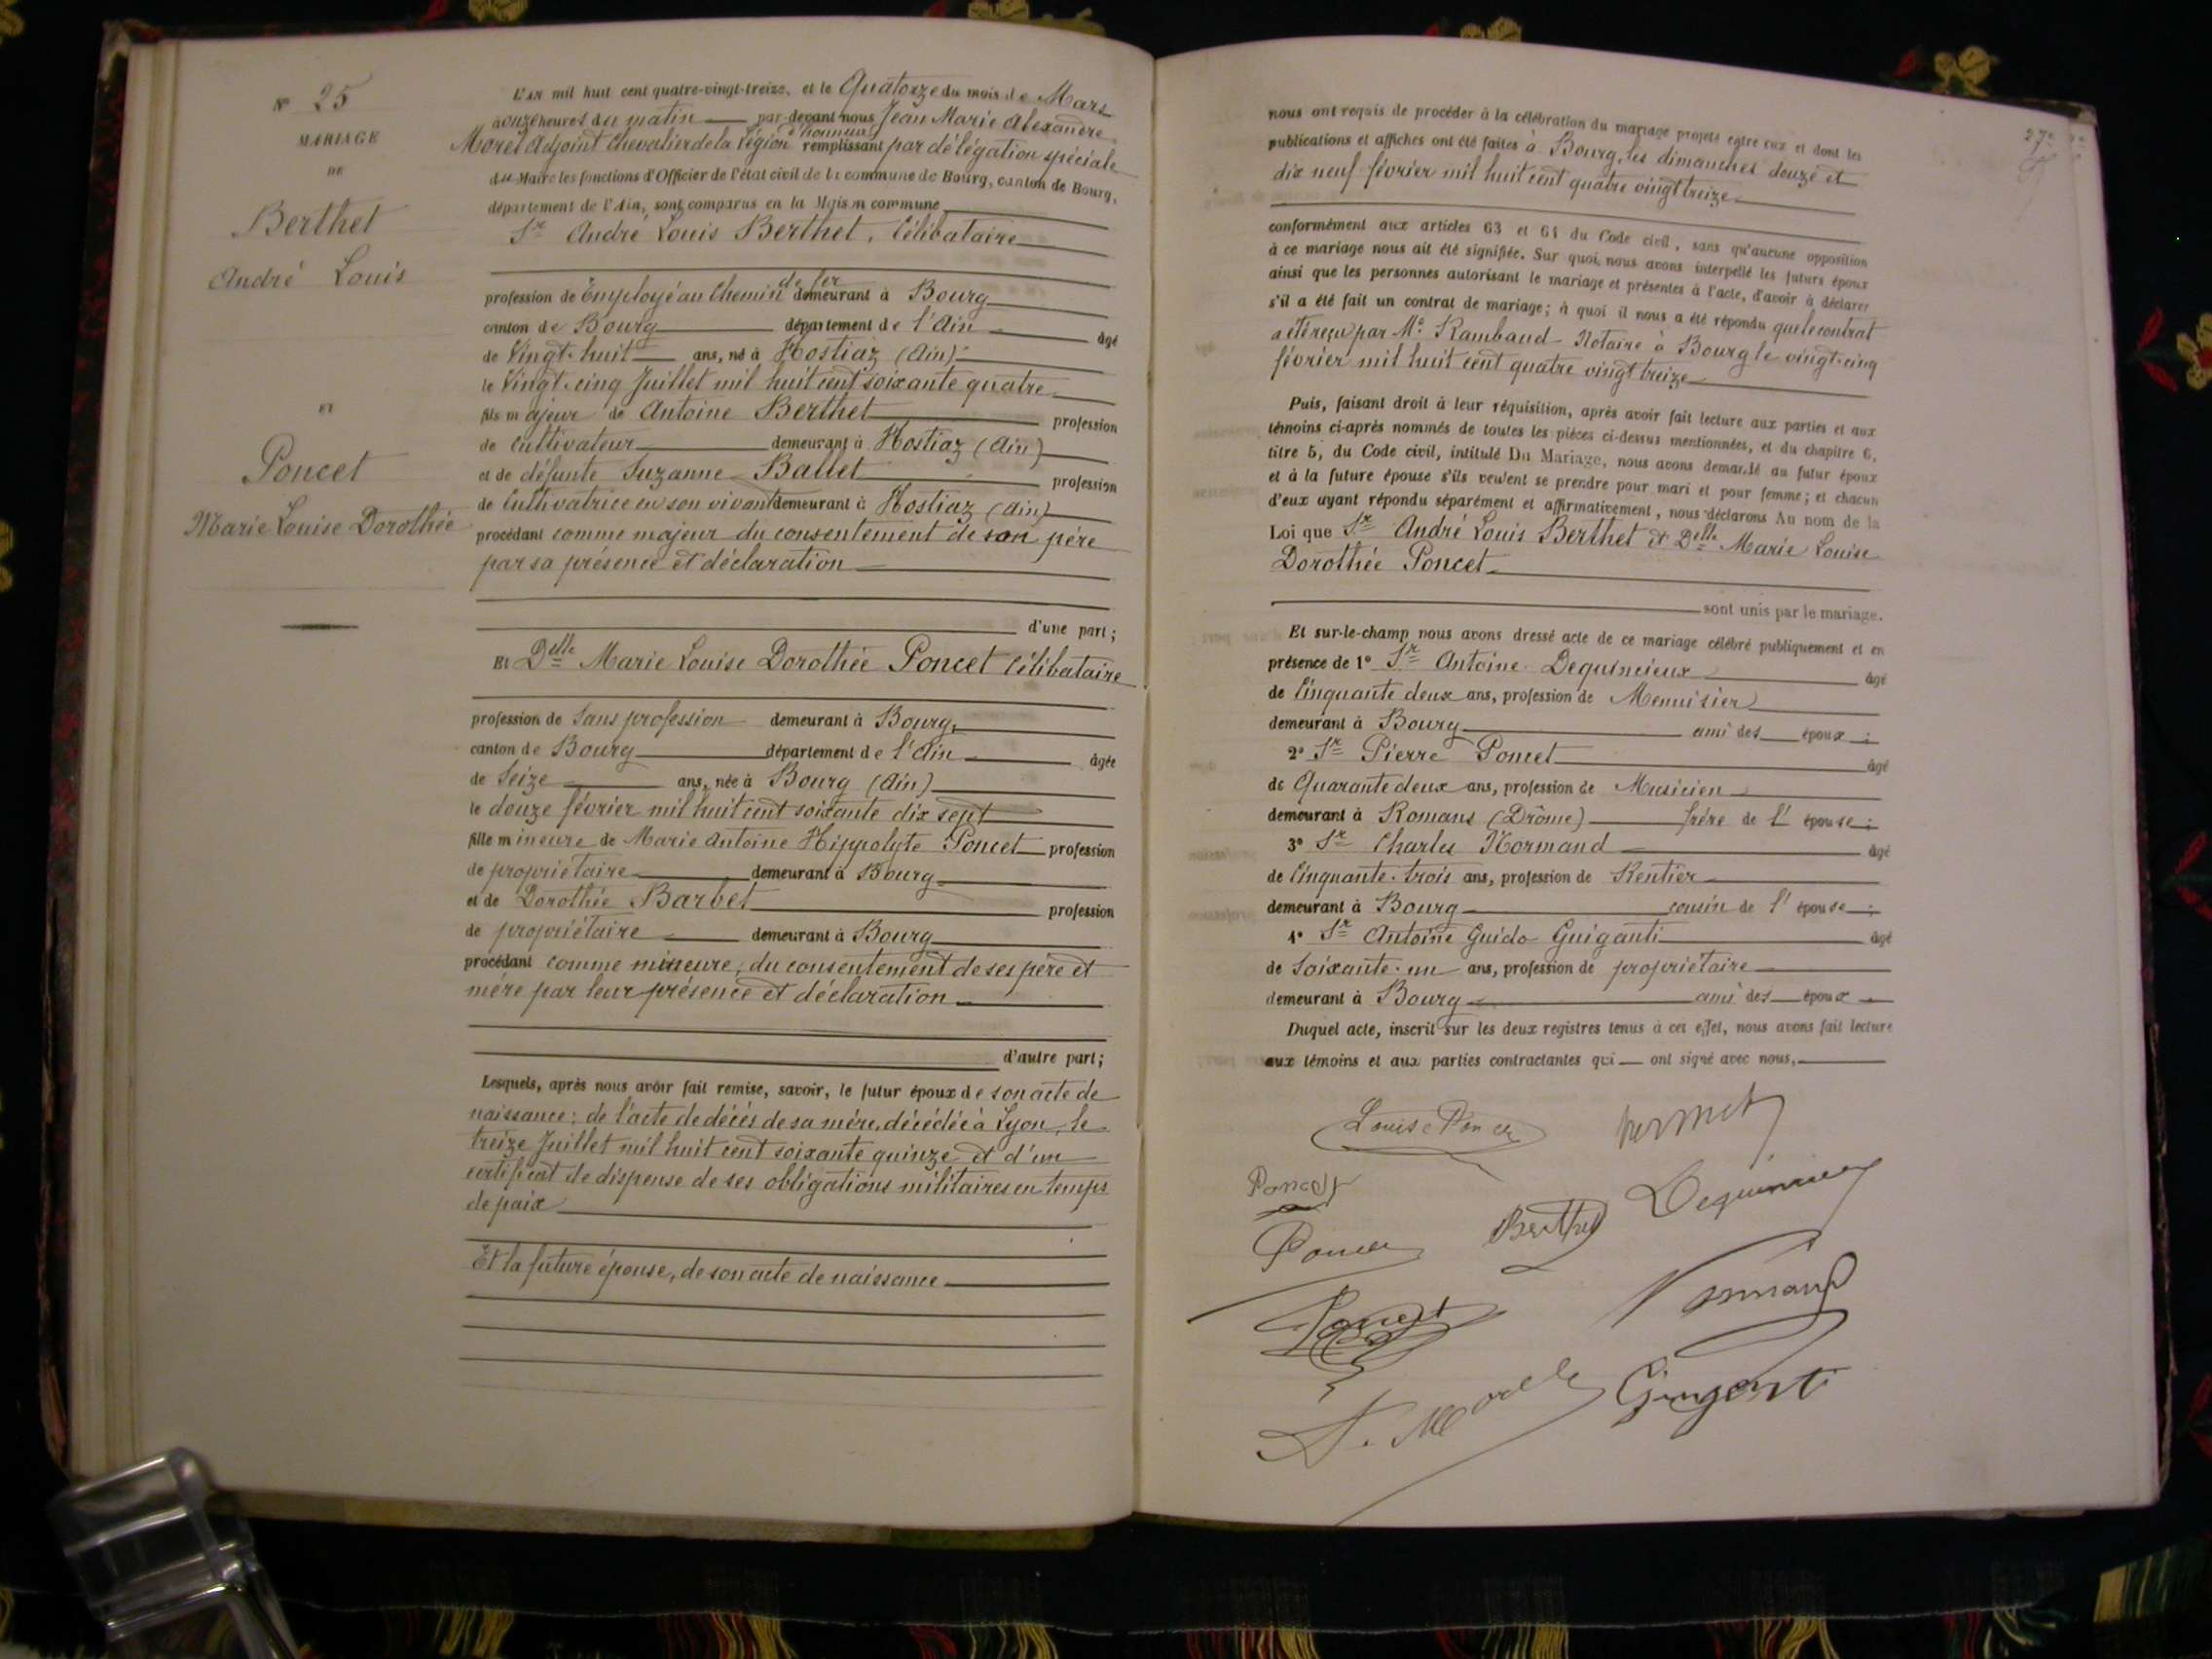 N° 25
MARIAGE
DE
Berthet
André Louis
ET
Poncet
Marie Louise Dorothée
L'AN mil huit cent quatre-vingt-treize, et le Quatorze du mois de Mars
à onze heures du matin par-devant nous Jean Marie Alexandre
Morel Adjoint Chevalier de la Légion d'honneur remplissant par délégation spéciale
du Maire les fonctions d'Officier de l'état civil de la commune de Bourg, canton de Bourg,
département de l'Ain, sont comparus en la Maison commune
Sr André Louis Berthet, Célibataire
profession de Employé au Chemin de fer demeurant à Bourg
canton de Bourg département de l'Ain âgé
de Vingt-huit ans, né à Hostiaz (Ain)
le Vingt-cinq Juillet mil huit cent soixante quatre
fils majeur de Antoine Berthet profession
de Cultivateur demeurant à Hostiaz (Ain)
et de défunte Suzanne Ballet profession
de Cultivatrice en son vivant demeurant à Hostiaz (Ain)
procédant comme majeur du consentement de son père
par sa présence et déclaration
d'une part;
Et Delle Marie Louise Dorothée Poncet Célibataire
profession de Sans profession demeurant à Bourg,
canton de Bourg département de l'Ain âgée
de Seize ans, née à Bourg (Ain)
le douze février mil huit cent soixante dix sept
fille mineure de Marie Antoine Hippolyte Poncet profession
de propriétaire demeurant à Bourg
et de Dorothée Barbet profession
de propriétaire demeurant à Bourg
procédant comme mineure, du consentement de ses père et
mère par leur présence et déclaration
d'autre part;
Lesquels, après nous avoir fait remise, savoir, le futur époux de son acte de
naissance; de l'acte de décès de sa mère, décédée à Lyon, le
treize Juillet mil huit cent soixante quinze et d'un
certificat de dispense de ses obligations militaires en temps
de paix
Et la future épouse, de son acte de naissance
27e
nous ont requis de procéder à la célébration du mariage projeté entre eux et dont les
publications et affiches ont été faites à Bourg, les dimanches douze et
dix neuf février mil huit cent quatre vingt treize
conformément aux articles 63 et 64 du Code civil, sans qu'aucune opposition
à ce mariage nous ait été signifiée. Sur quoi, nous avons interpellé les futurs époux
ainsi que les personnes autorisant le mariage et présentes à l'acte, d'avoir à déclarer
s'il a été fait un contrat de mariage; à quoi il nous a été répondu que le contrat
a été reçu par Me Rambaud Notaire à Bourg le vingt-cinq
février mil huit cent quatre vingt treize
Puis, faisant droit à leur réquisition, après avoir fait lecture aux parties et aux
témoins ci-après nommés de toutes les pièces ci-dessus mentionnées, et du chapitre 6,
titre 5, du Code civil, intitulé Du Mariage, nous avons demandé au futur époux
et à la future épouse s'ils veulent se prendre pour mari et pour femme; et chacun
d'eux ayant répondu séparément et affirmativement, nous déclarons Au nom de la
Loi que Sr André Louis Berthet et Delle Marie Louise
Dorothée Poncet
sont unis par le mariage.
Et sur-le-champ nous avons dressé acte de ce mariage célébré publiquement et en
présence de 1° Sr Antoine Dequincieux âgé
de Cinquante deux ans, profession de Menuisier
demeurant à Bourg ami des époux;
2° Sr Pierre Poncet âgé
de Quarante deux ans, profession de Musicien
demeurant à Romans (Drôme) frère de l'épouse;
3° Sr Charles Normand âgé
de Cinquante-trois ans, profession de Rentier
demeurant à Bourg cousin de l'épouse;
4° Sr Antoine Guido Guiganti âgé
de Soixante-un ans, profession de propriétaire
demeurant à Bourg ami des époux
Duquel acte, inscrit sur les deux registres tenus à cet effet, nous avons fait lecture
aux témoins et aux parties contractantes qui ont signé avec nous,
Louise Poncet
Poncet
Berthet
Dequincieux
Poncet
Poncet
Normand
A. Morel